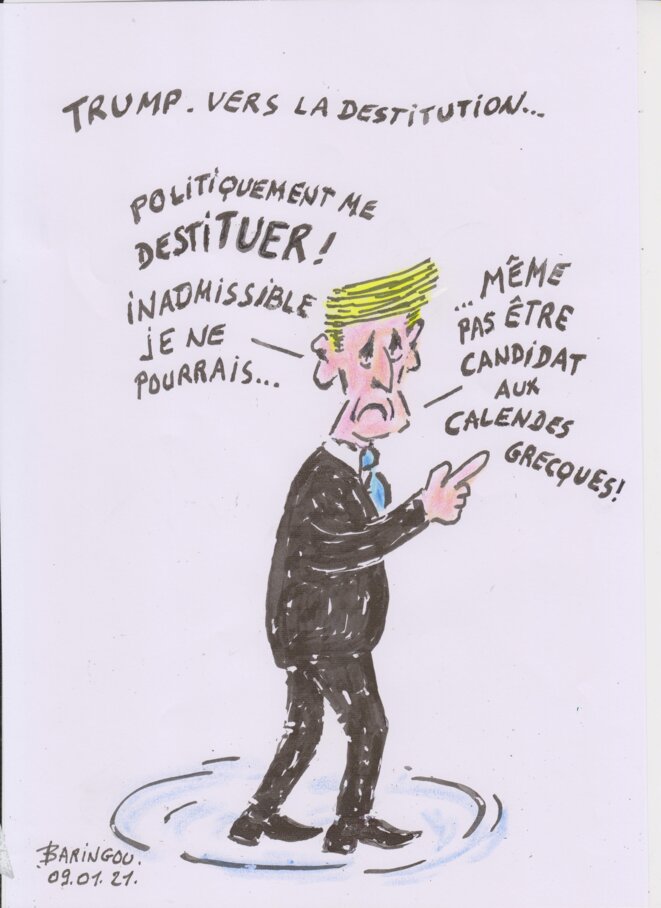 TRUMP. VERS LA DESTITUTION...
POLITIQUEMENT ME
DESTITUER!
INADMISSIBLE
JE NE
POURRAIS...
... MÊME
PAS ÊTRE
CANDIDAT
AUX
CALENDES
GRECQUES!
BARINGOU.
09.01.21.